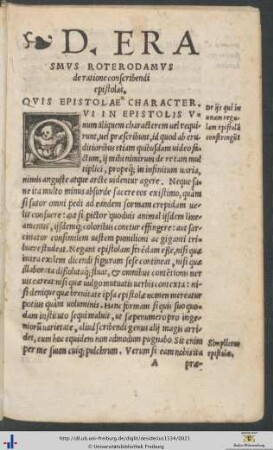 D. ERA
SMVS ROTERODAMVS
de ratione conscribendi
epistolas.
QVIS EPISTOLAE CHARACTER.
QVI IN EPISTOLIS V-
num aliquem characterem uel requi
runt, uel præscribunt, id quod ab eru
ditioribus etiam quibusdam uideo fa
ctum, ij mihi nimirum de re tam mul
tiplici, propeq; in infinitum uaria,
nimis anguste atque arcte uidentur agere. Neque sa
ne ita multo minus absurde facere eos existimo, quàm
si sutor omni pedi ad eandem formam crepidam ue
lit consuere: aut si pictor quoduis animal ijsdem line
amentis, ijsdemq; coloribus conetur effingere: aut sar
cinator consimilem uestem pumilioni ac giganti tri
buere studeat. Negant epistolam ferēdam esse, nisi quæ
intra exilem dicendi figuram sese contineat, nisi quæ
elaborata dissoluta; sit, & omnibus contētionis ner
uis careat nisi quæ uulgo mutuatis uerbis contexta: ni
si deniqe quæ breuitate ipsa epistolæ nomen mereatur
potius quàm uoluminis. Hanc formam siquis suo quo-
dam instituto sequi maluit, ut sæpenumero pro inge-
niorū uarietate, aliud scribendi genus alij magis arri
det, cum hoc equidem non admodum pugnabo. Sit enim
per me suum cuiq; pulchrum. Verum si eam nobis ita
A præ-
De ijs qui in
unam regu
lam epistolā
constringūt
Simplicitas
epistolæ.
http://dl.ub.uni-freiburg.de/diglit/desiderius1534/0021
© Universitätsbibliothek Freiburg